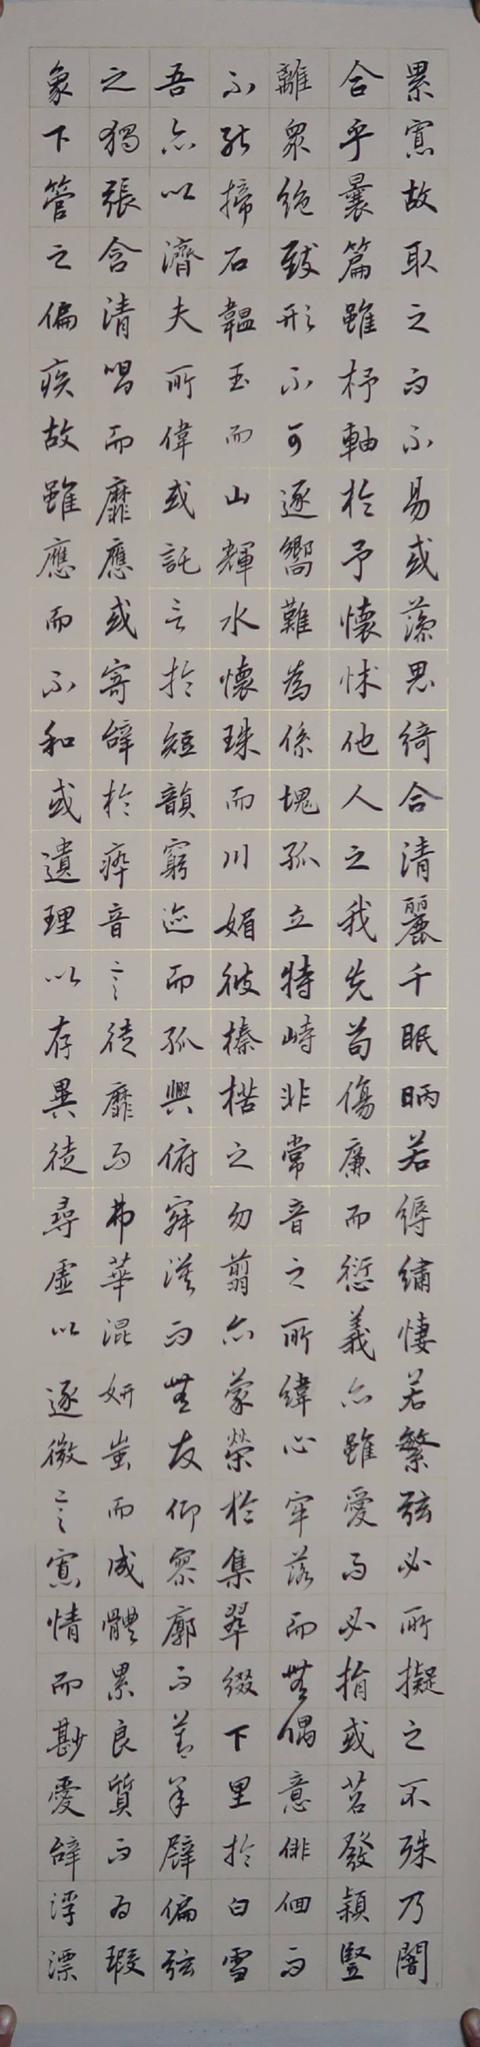 累寡故取之而不易或藻思綺合清麗千眠昞若縟繡悽若繁弦必所擬之不殊乃闇
合乎曩篇雖杼軸於予懷怵他人之我先苟傷廉而愆義亦雖愛而必捐或苕發穎豎
離衆絶致形不可逐嚮難為係塊孤立特峙非常音之所緯心牢落而無偶意俳佪而
不能揥石韞玉而山輝水懷珠而川媚彼榛楛之勿翦亦蒙榮於集翠綴下里於白雪
吾亦以濟夫所偉或託言於短韻窮迹而孤興俯寂漠而無友仰寥廓而莫承譬偏弦
之獨張含清唱而靡應或寄辭於瘁音言徒靡而弗華混妍蚩而成體累良質而為瑕
象下管之偏疾故雖應而不和或遺理以存異徒尋虛以逐微言寡情而尠愛辭浮漂